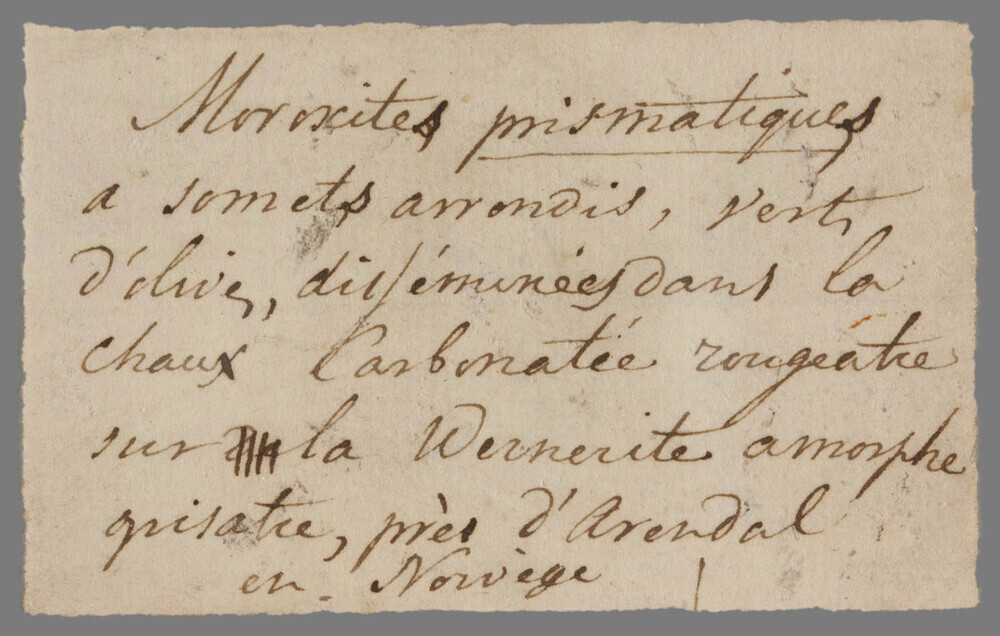 Moroxites prismatiques
a somets arrondis, vert
d'olive, disséminées dans la
chaux Carbonatée rougeatre
sur la Wernerite amorphe
grisatre, près d'Arendal
en Norvège